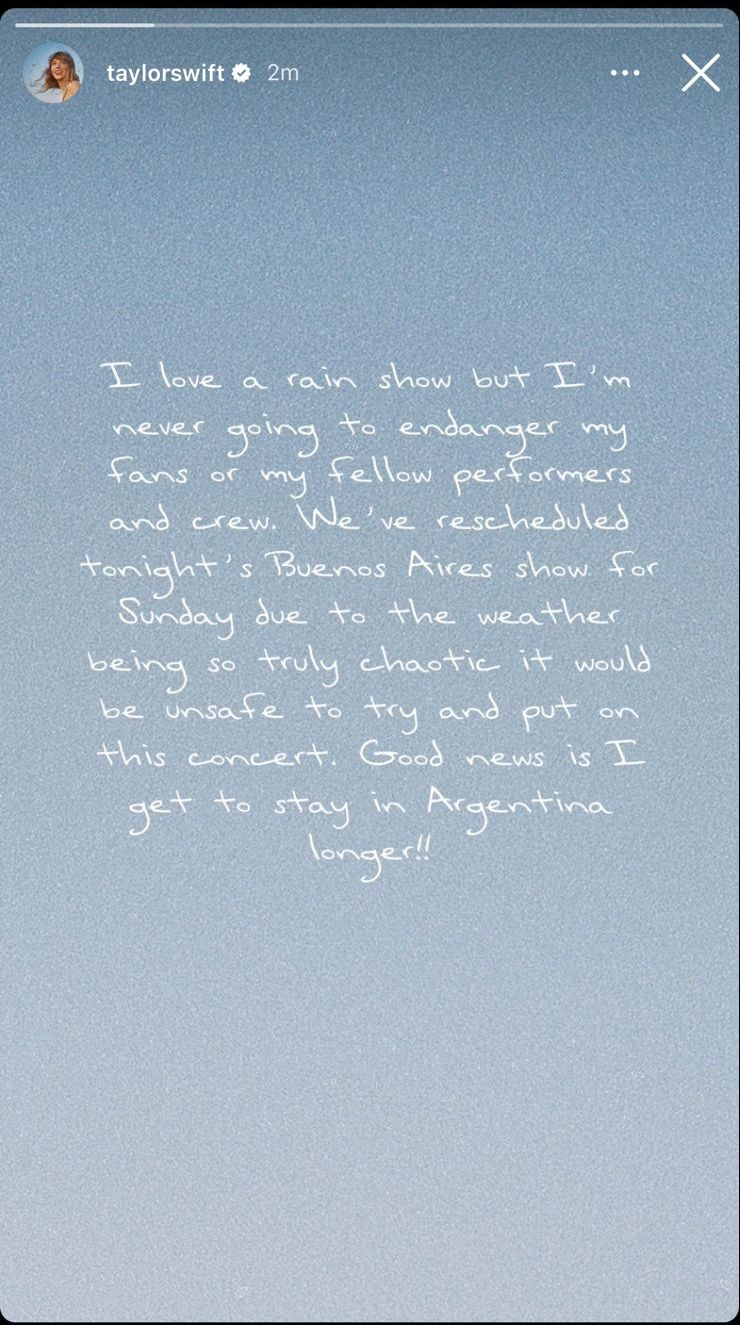 taylorswift 2m
I love a rain show but I'm
never going to endanger my
fans or my fellow performers
and crew. We've rescheduled
tonight's Buenos Aires show for
Sunday due to the weather
being so truly chaotic it would
be unsafe to try and put on
this concert. Good news is I
get to stay in Argentina
longer!!